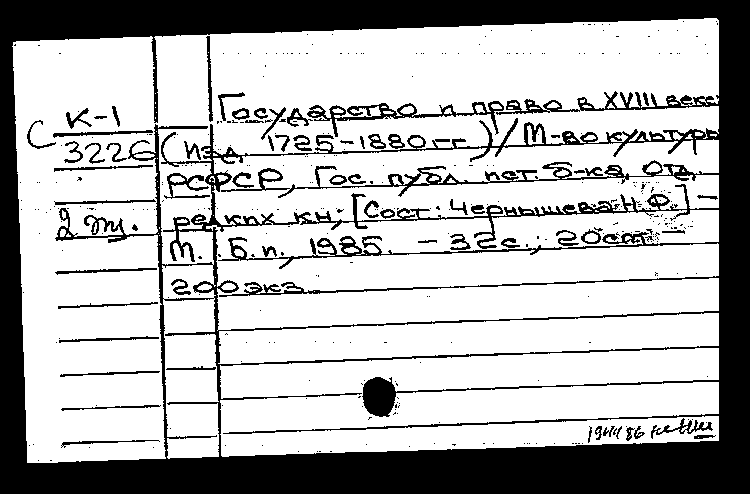 С К-1 Государство и право в XVIII веке
3226 (изд. 1725-1880 гг.) / М-во культуры
РСФСР, Гос. публ. ист. б-ка, Отд.
2 эк. редких кн; [Сост: Чернышева Н.Ф.] —
М.: Б.и., 1985. - 32с.; 20см —
200экз.